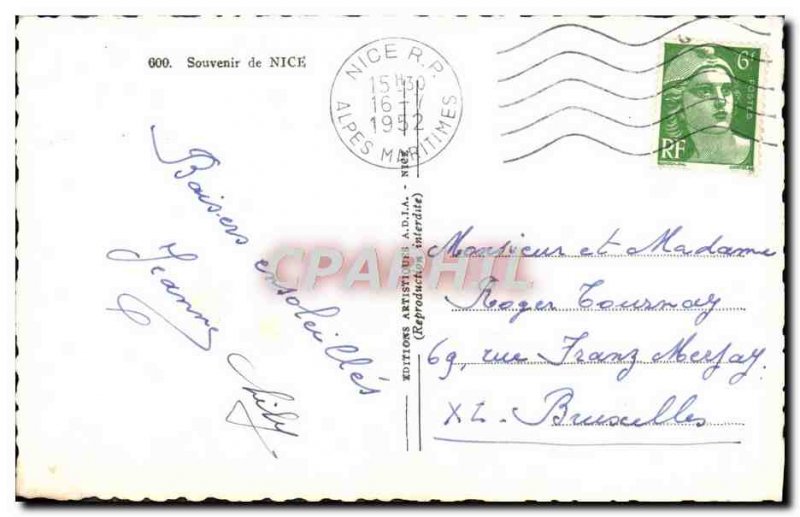 600. Souvenir de NICE
NICE R.P.
15H30
16 -
1952
ALPES MARITIMES
6F
POSTES
RF
Baisers ensoleillés
Jeanne
EDITIONS ARTISTIQUES A.D.I.A. - NICE
(Reproduction interdite)
CPAPHIL
Monsieur et Madame
Roger Tournay
69, rue Franz Merjay.
XL. Bruxelles